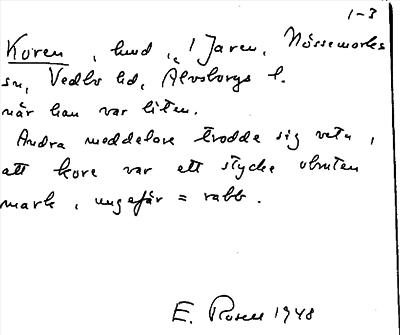 1-3
Koren, hund, "1 Jaren, Nössemarks
sn, Vedbo hd, Älvsborgs l.
när han var liten.
Andra meddelare trodde sig veta,
att kore var ett stycke obruten
mark, ungefär = rabb.
E. Rosen 1948